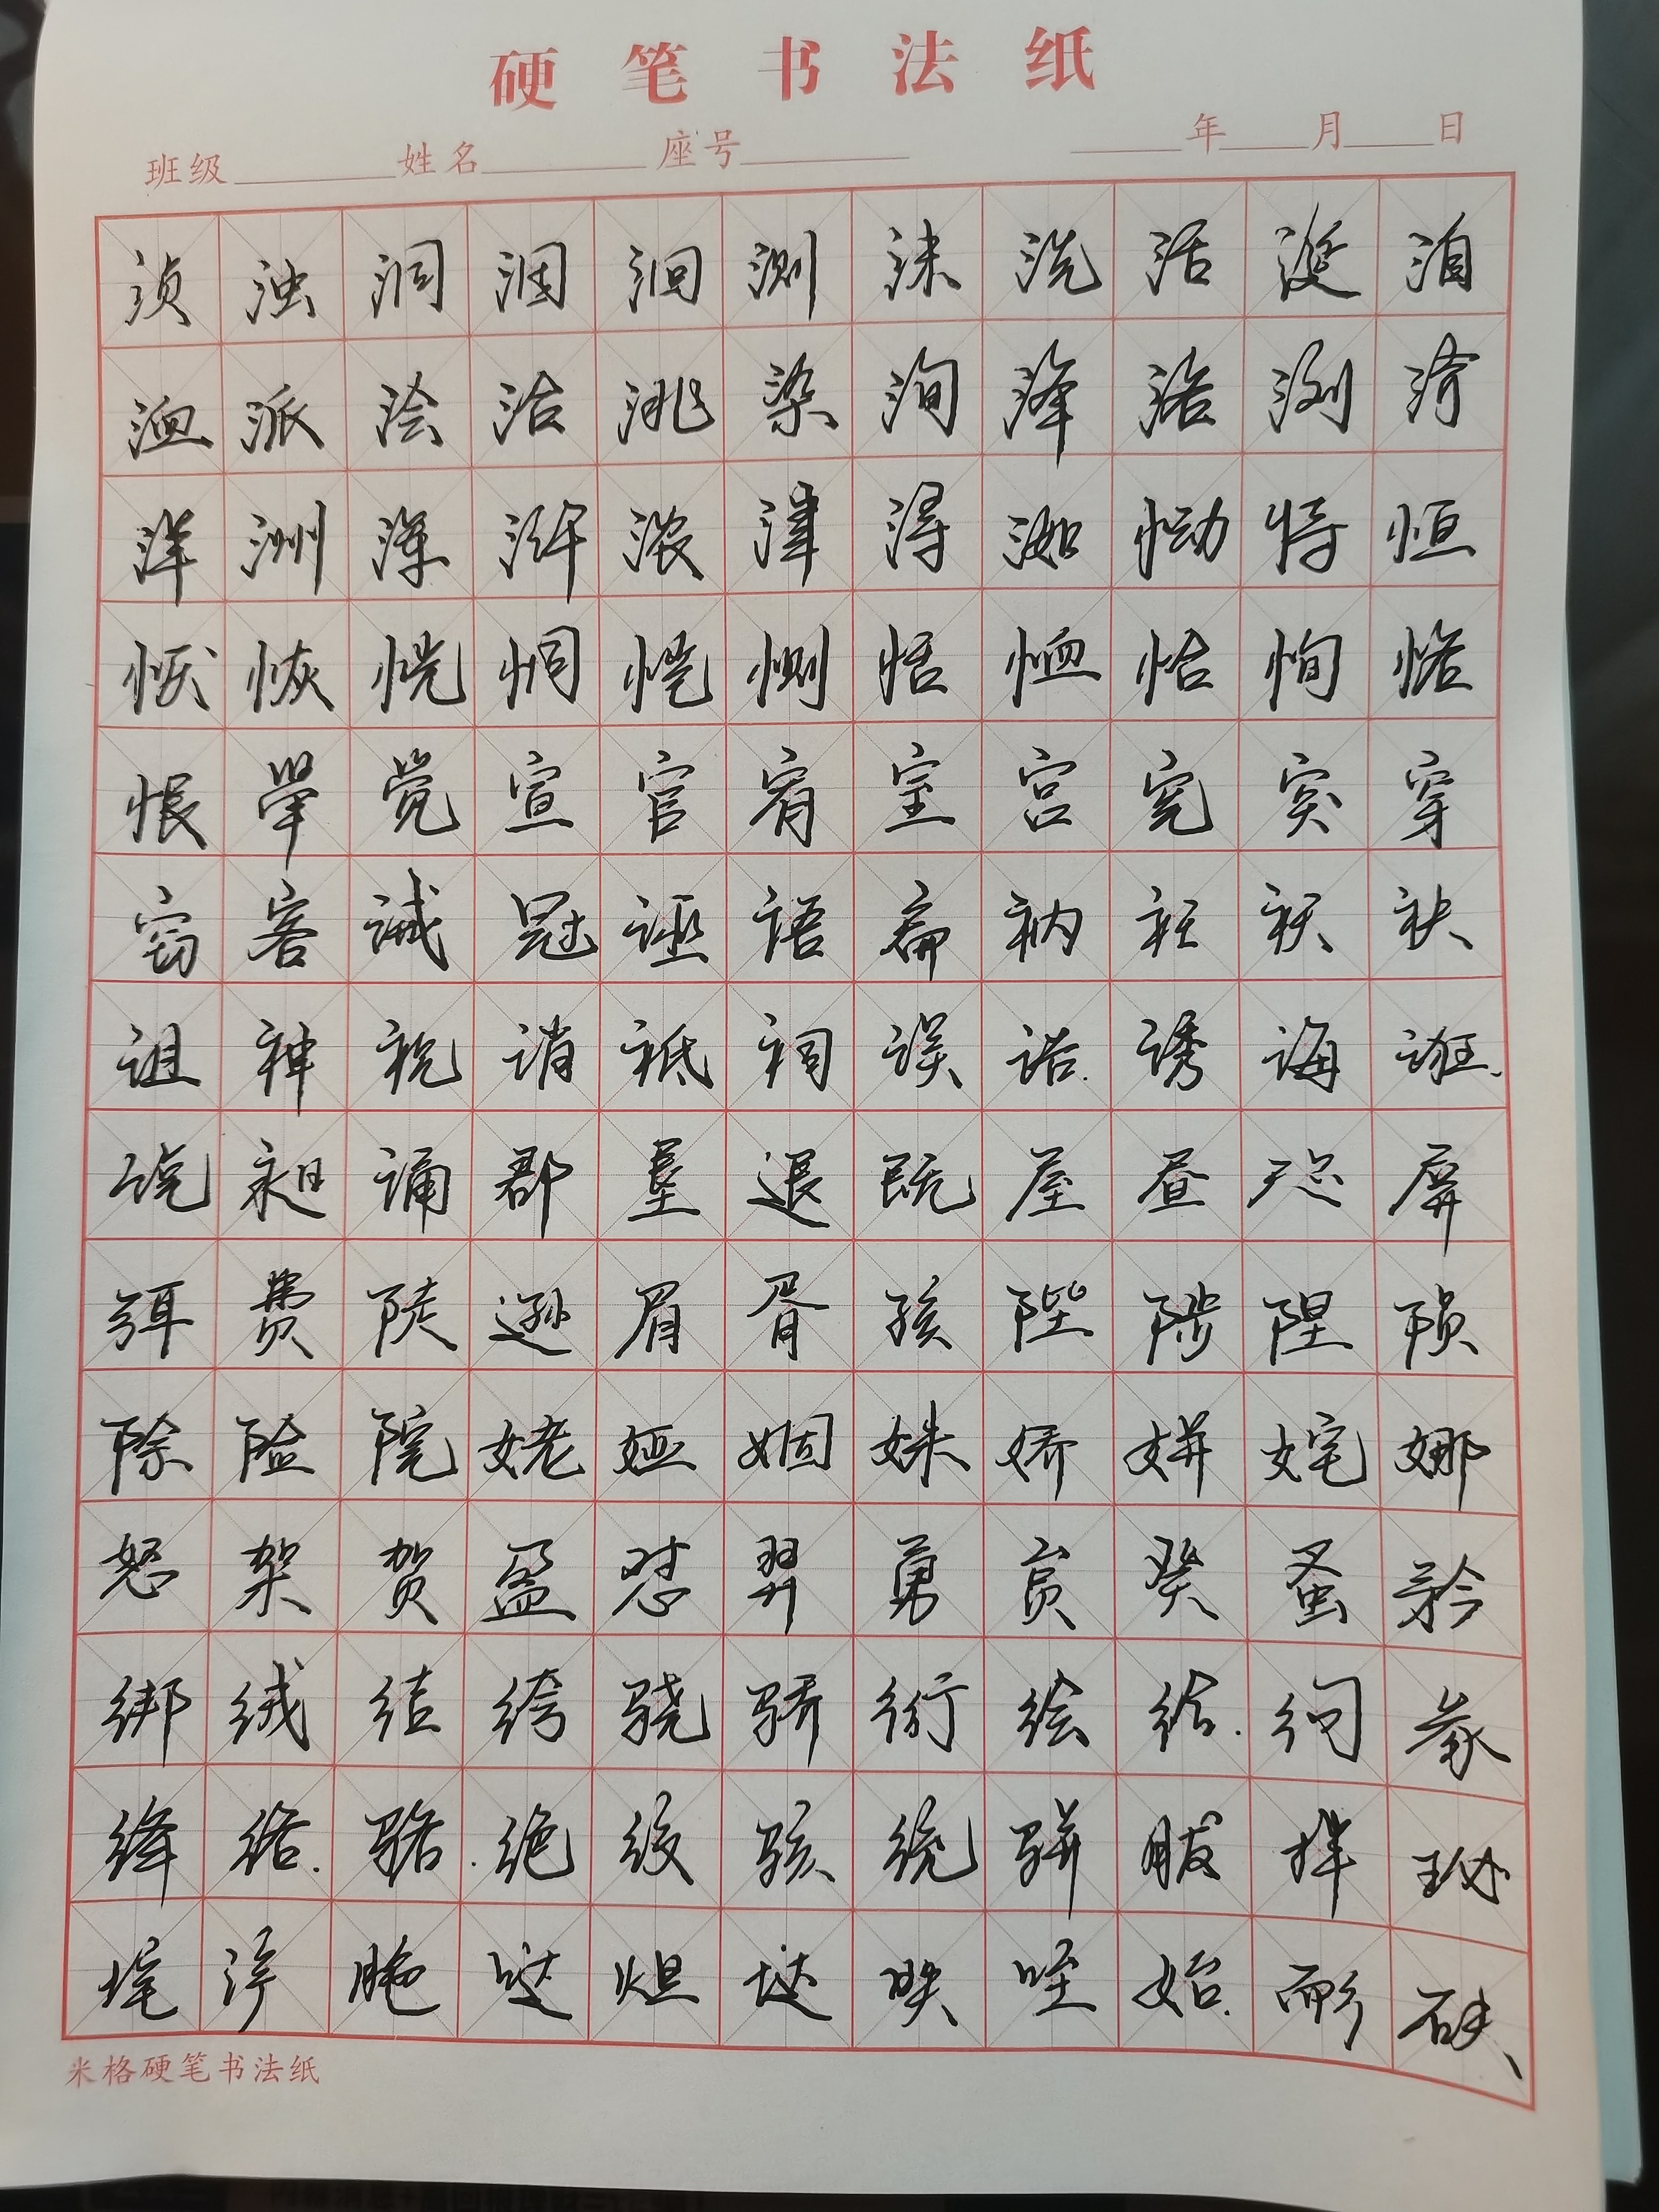 硬笔书法纸
班级 姓名 座号 年 月 日
浈浊洞洇洄测洙洗活涎洎
洫派浍洽洮染洵洚洛浏济
洋洲浑浒浓津浔洳恸恃恒
恹恢恍恫恺恻恬恤恰恂恪
恨举觉宣宦宥室宫宪突穿
窃客诫冠诬语扁衲衽袄袂
祖神祝诮祗祠误诰诱诲诳
说昶诵郡垦退既屋昼咫屏
弭费陡逊眉胥孩陛陟陧陨
除险院姥娅姻姝娇姘姹娜
怒架贺盈怼羿勇癸蚤矜
绑绒结绔骁骄绗绘给绚彖
绛络骆绝绞骇统骈胈珌
哒炟垯昳咥始耏砆
米格硬笔书法纸